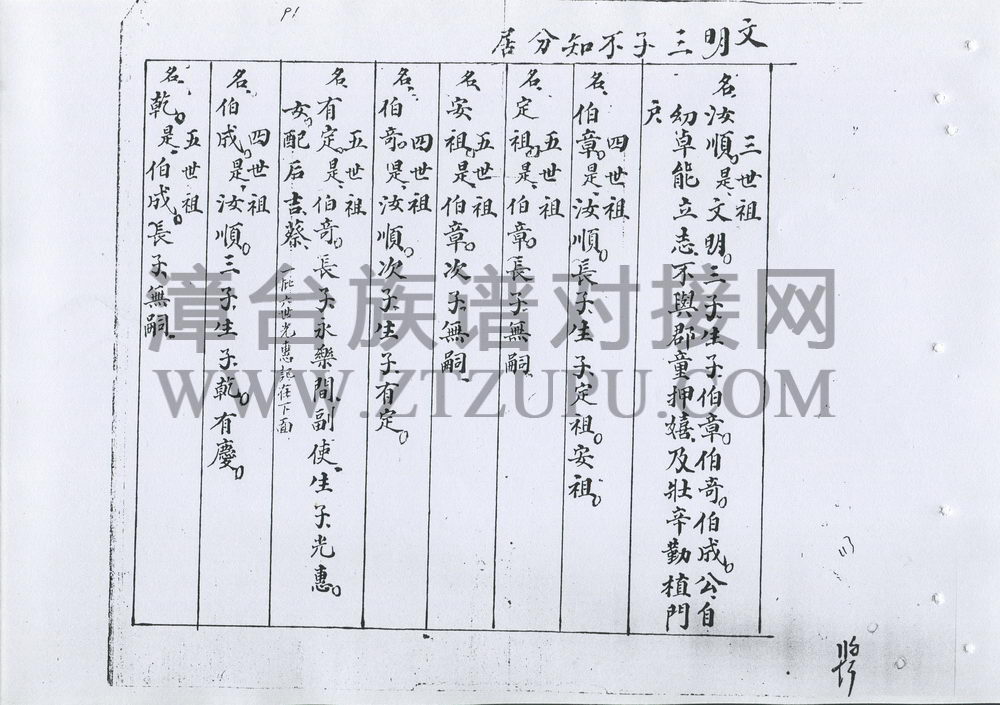 P1
文明三子不知分居
三世祖
名汝順。是文明。三子。生子。伯章。伯奇。伯成。公自
幼卓能立志不與郡童押嬉及壯辛勤植門
戶
四世祖
名伯章。是汝順。長子。生子定祖。安祖。
五世祖
名定祖。是伯章。長子無嗣
五世祖
名安祖。是伯章。次子無嗣
四世祖
名伯奇。是汝順。次子。生子有定。
五世祖
名有定。是伯奇。長子永樂間副使生子光惠。
女。配后吉蔡
六世光惠記在下面
四世祖
名伯成。是汝順。三子。生子乾。有慶。
五世祖
名乾。是伯成。長子無嗣
漳台族谱对接网
WWW.ZTZUPU.COM
113